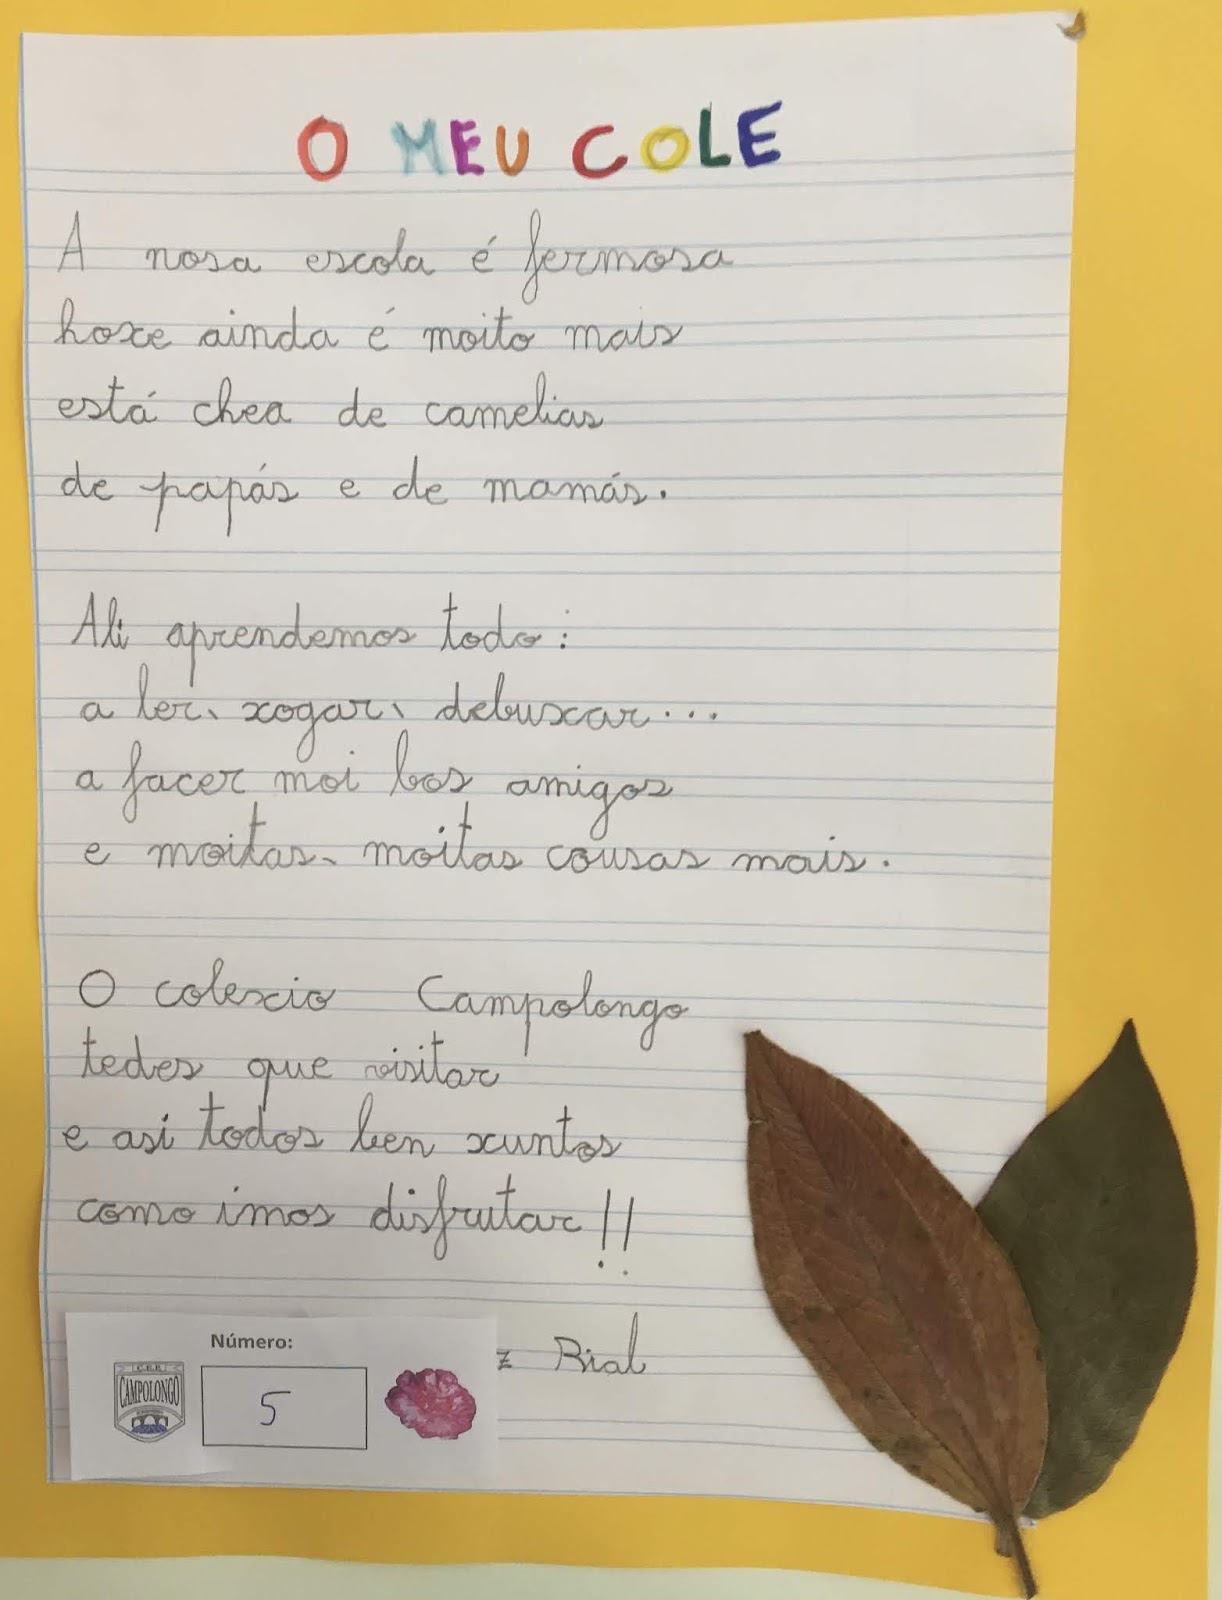 O MEU COLE
A nosa escola é fermosa
hoxe ainda é moito mais
está chea de camelias
de papás e de mamás.
Ali aprendemos todo:
a ler, xogar, debuxar...
a facer moi bos amigos
e moitas, moitas cousas mais.
O colexio Campolongo
tedes que visitar
e asi todos ben xuntos
como imos disfrutar!!
z Rial
Número:
5
C.E.P.
CAMPOLONGO